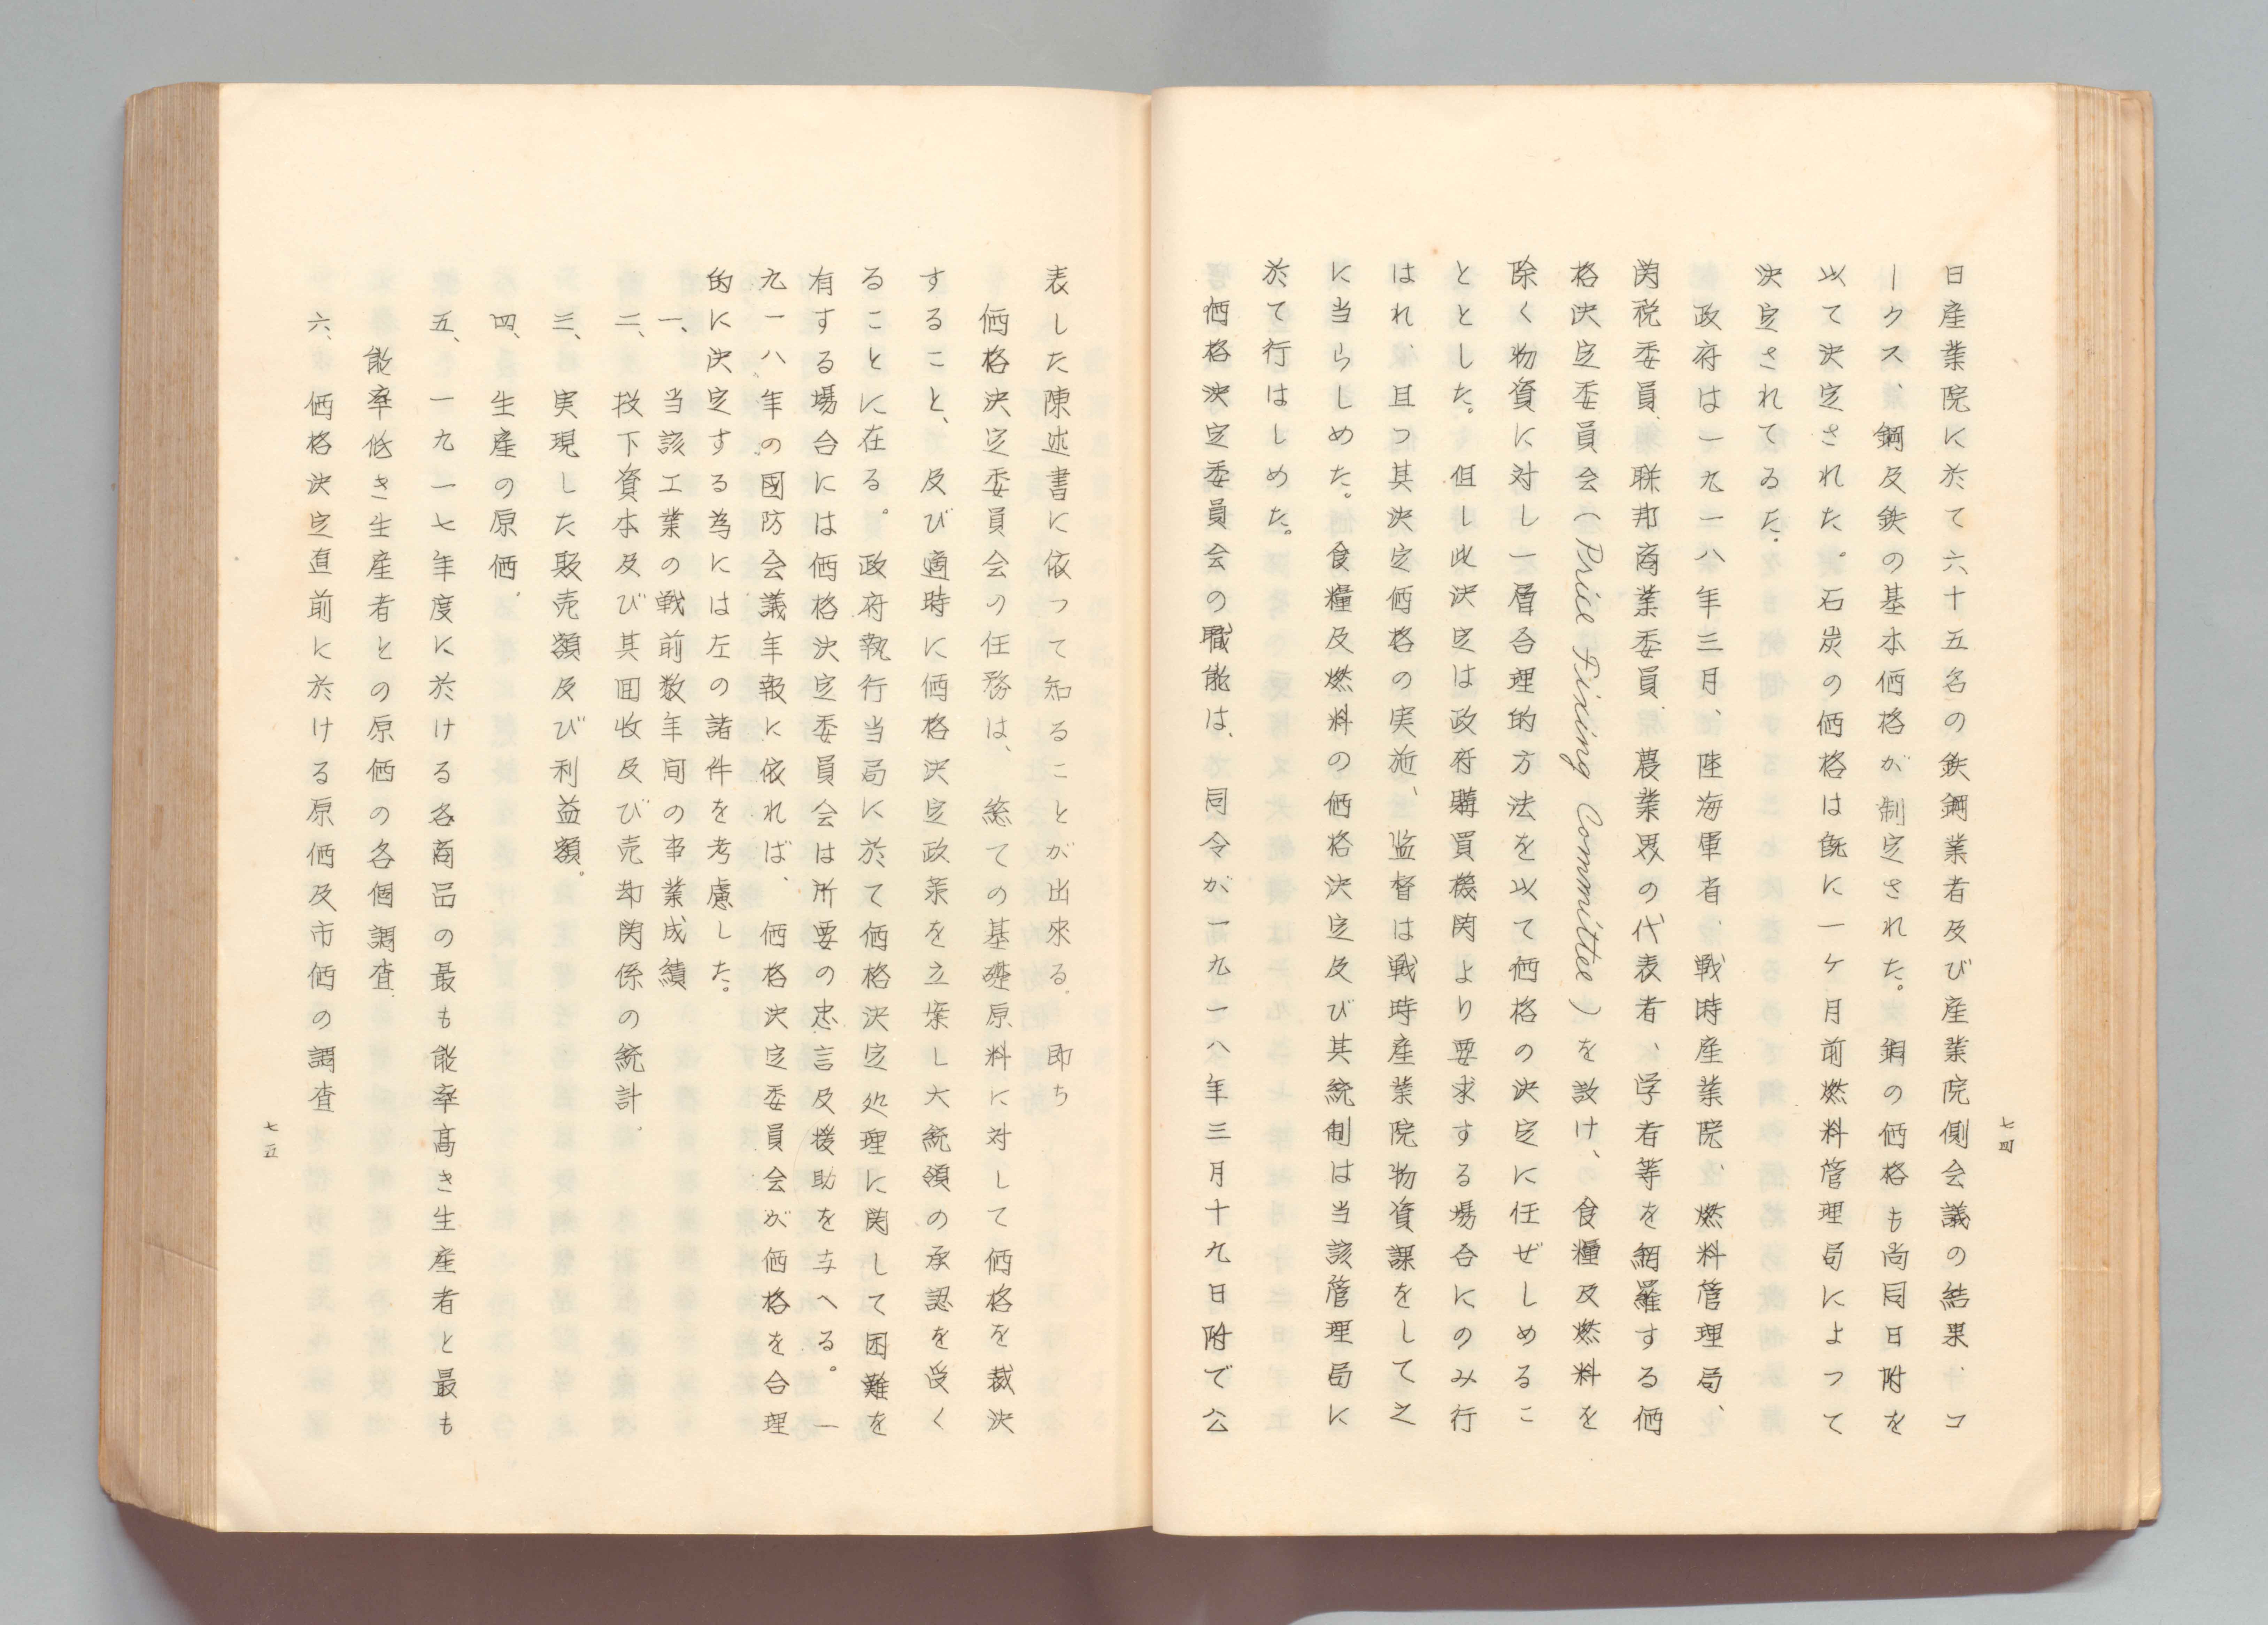 七四
日産業院に於て六十五名の鉄鋼業者及び産業院側会議の結果、コ
ークス、鋼及鉄の基本価格が制定された。銅の価格も尚同日附を
以て決定された。石炭の価格は既に一ケ月前燃料管理局によつて
決定されてゐた。
政府は一九一八年三月、陸海軍省、戦時産業院、燃料管理局、
関税委員、聯邦商業委員、農業界の代表者、学者等を網羅する価
格決定委員会(Price Fixing Committee)を設け、食糧及燃料を
除く物資に対し一層合理的方法を以て価格の決定に任ぜしめるこ
ととした。但し此決定は政府購買機関より要求する場合にのみ行
はれ、且つ其決定価格の実施、監督は戦時産業院物資課をして之
に当らしめた。食糧及燃料の価格決定及び其統制は当該管理局に
於て行はしめた。
価格決定委員会の職能は、同令が一九一八年三月十九日附で公
表した陳述書に依つて知ることが出來る。即ち
価格決定委員会の任務は、総ての基礎原料に対して価格を裁決
すること、及び適時に価格決定政策を立案し大統領の承認を受く
ることに在る。政府執行当局に於て価格決定処理に関して困難を
有する場合には価格決定委員会は所要の忠言及援助を与へる。一
九一八年の國防会議年報に依れば、価格決定委員会が価格を合理
的に決定する為には左の諸件を考慮した。
一、当該工業の戦前数年間の事業成績
二、投下資本及び其回收及び売却関係の統計。
三、実現した販売額及び利益額。
四、生産の原価。
五、一九一七年度に於ける各商品の最も能率高き生産者と最も
能率低き生産者との原価の各個調査。
六、価格決定直前に於ける原価及市価の調査
七五